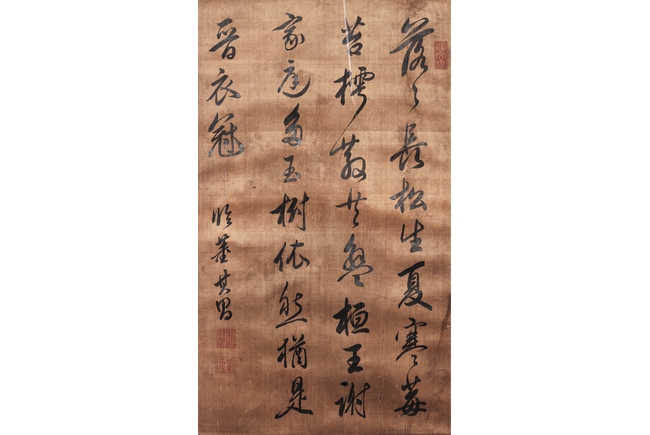 落〻長松生夏寒莓
苔樗散共盤桓王謝
家庭多玉樹依然猶是
晉衣冠
臨董其昌